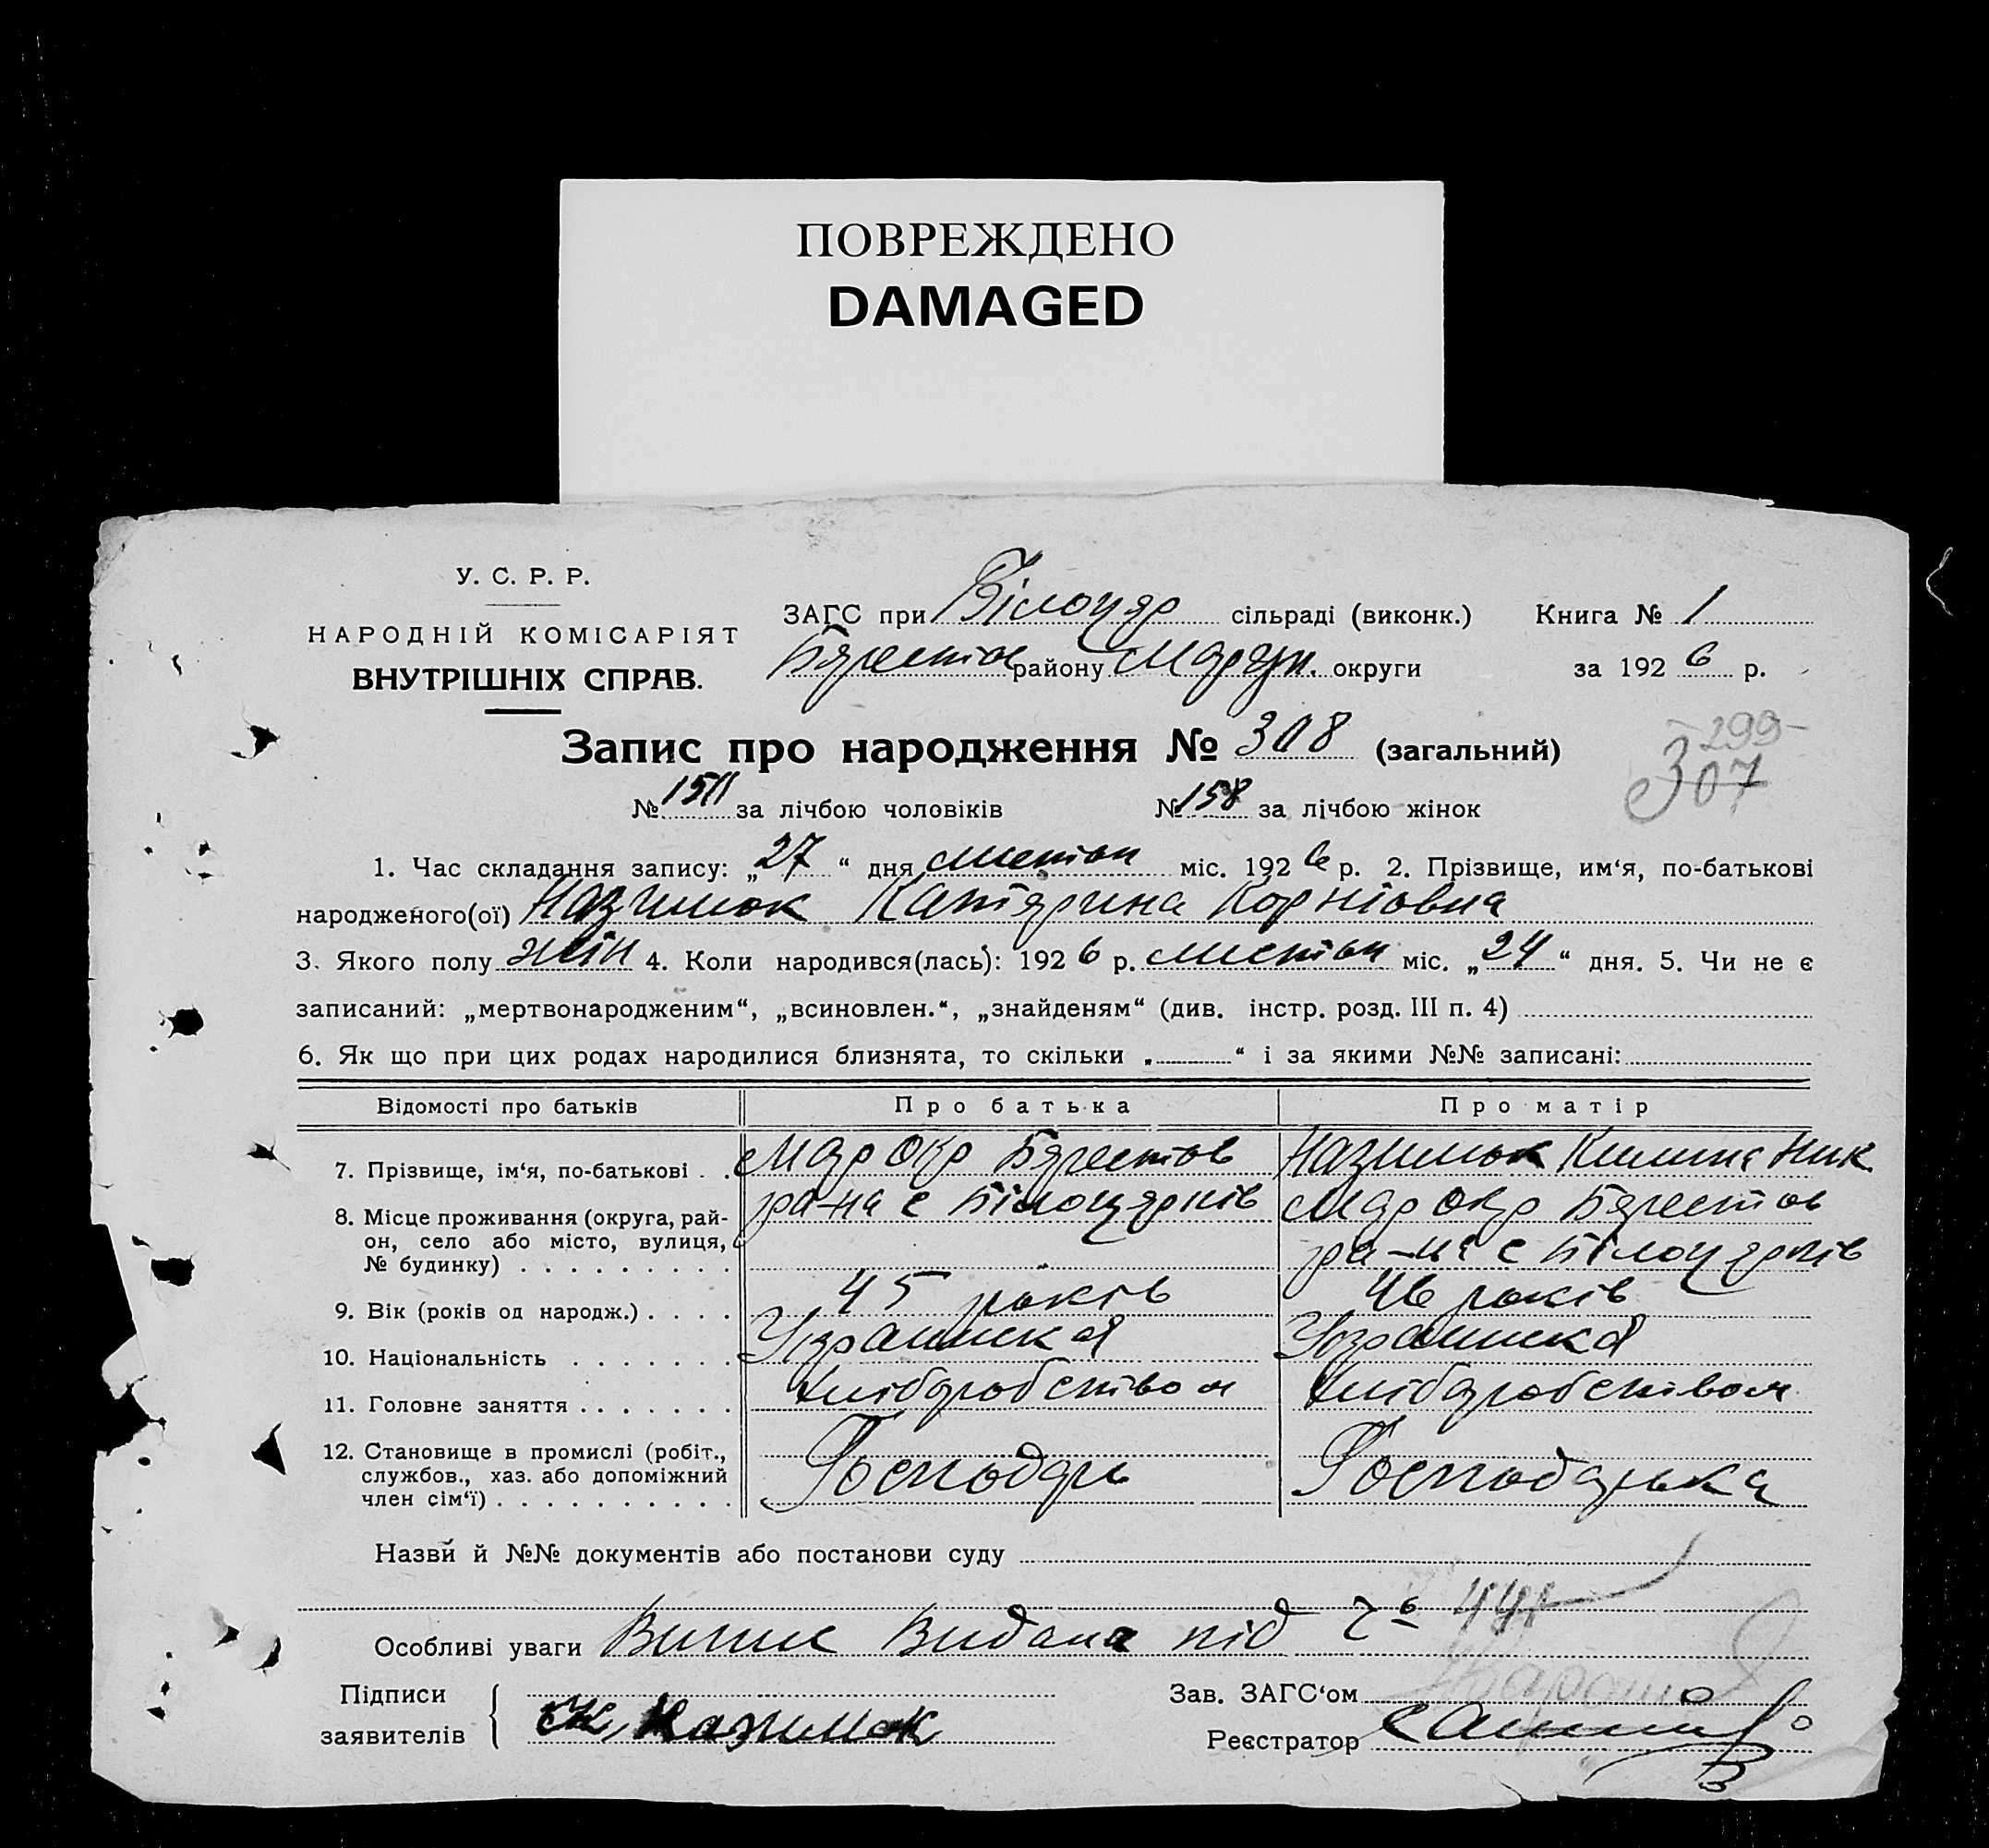 ПОВРЕЖДЕНО
DAMAGED
У. С. Р. Р.
НАРОДНІЙ КОМІСАРІЯТ
ВНУТРІШНІХ СПРАВ.
ЗАГС при Білоцер сільраді (виконк.) Книга № 1
Берестов району Маріуп. округи за 1926 р.
Запис про народження № 308 (загальний)
299
307
№ за лічбою чоловіків № 158 за лічбою жінок
1. Час складання запису: „27“ дня листоп міс. 1926 р. 2. Прізвище, им‘я, по-батькові
народженого(ої) Назимок Катерина Корніовна
3. Якого полу жін 4. Коли народився(лась): 1926 р. листоп міс. „24“ дня. 5. Чи не є
записаний: „мертвонародженим“, „всиновлен.“, „знайденям“ (див. інстр. розд. III п. 4)
6. Як що при цих родах народилися близнята, то скільки „ “ і за якими №№ записані:
Відомості про батьків Про батька Про матір
7. Прізвище, ім‘я, по-батькові . . Мар Окр Берестов Назимок Килина Ник
8. Місце проживання (округа, рай- ра-на с Білоцерків Мар Окр Берестов
он, село або місто, вулиця,
№ будинку) . . . . . . . . . ра-на с Білоцерків
9. Вік (років од народж.) . . . . 45 років 46 років
10. Національність . . . . . . . Украинска Украинска
11. Головне заняття . . . . . . . Хліборобством Хліборобством
12. Становище в промислі (робіт., Господарь Господарька
службов., хаз. або допоміжний
член сім‘ї) . . . . . . . . . .
Назви й №№ документів або постанови суду
Особливі уваги Випис Видана під
Підписи Зав. ЗАГС‘ом
заявителів К. Назимок Реєстратор